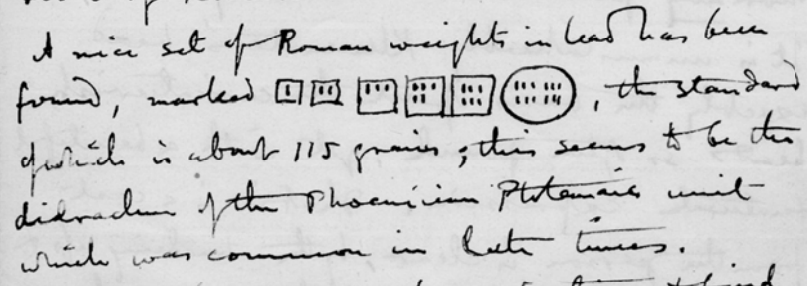 A nice set of Roman weights in lead has been
found, marked , the standard
of which is about 115 grains; this seems to be the
didrachm of the Phoenician Ptolemaic unit
which was common in late times.